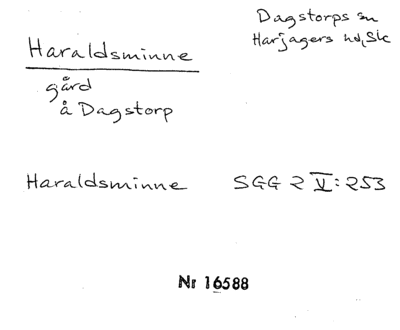 Dagstorps sn
Harjagers hd, Sk
Haraldsminne
gård
å Dagstorp
Haraldsminne SGG 2 V: 253
Nr 16588